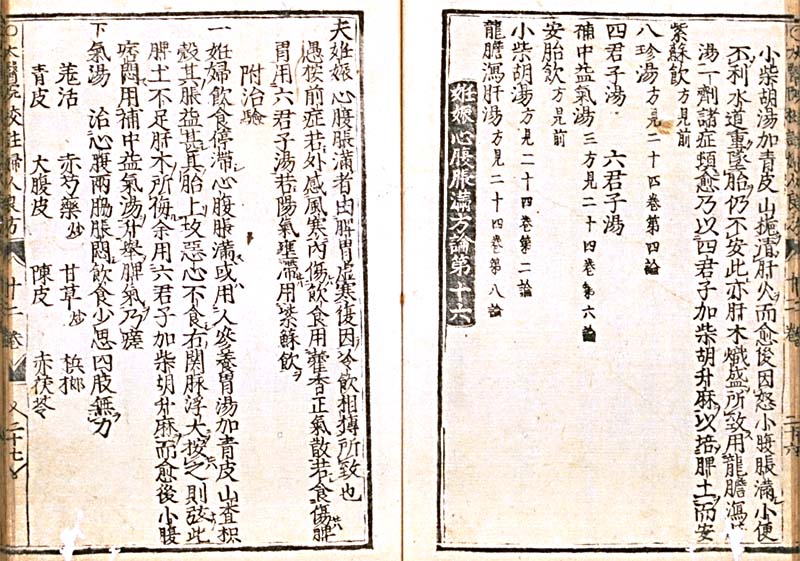 小柴胡湯加青皮山梔清肝火而愈後因怒小腹脹滿小便
不利水道重墜胎仍不安此亦肝木熾盛所致用龍膽瀉肝
湯一劑諸症頓愈乃以四君子加柴胡升麻以培脾土而安
紫蘇飲方見前
八珍湯方見二十四卷第四論
四君子湯　六君子湯
補中益氣湯三方見二十四卷第六論
安胎飲方見前
小柴胡湯方見二十四卷第二論
龍膽瀉肝湯方見二十四卷第八論
妊娠心腹脹滿方論第十六
夫妊娠心腹脹滿者由脾胃虛寒復因冷飲相搏所致也
愚按前症若外感風寒内傷飲食用藿香正氣散若食傷脾
胃用六君子湯若陽氣壅滯用紫蘇飲
附治驗
一妊婦飲食停滯心腹脹滿或用人參養胃湯加青皮山査枳
殼其脹益甚其胎上攻惡心不食右関脉浮大按之則弦此
脾土不足肝木所侮余用六君子加柴胡升麻而愈後小腹
痞悶用補中益氣湯升舉脾氣乃瘥
下氣湯　治心腹兩脇脹悶飲食少思四肢無力
羗活　赤芍藥炒　甘草炒　梹榔
青皮　大腹皮　陳皮　赤茯苓
十二卷
二十七